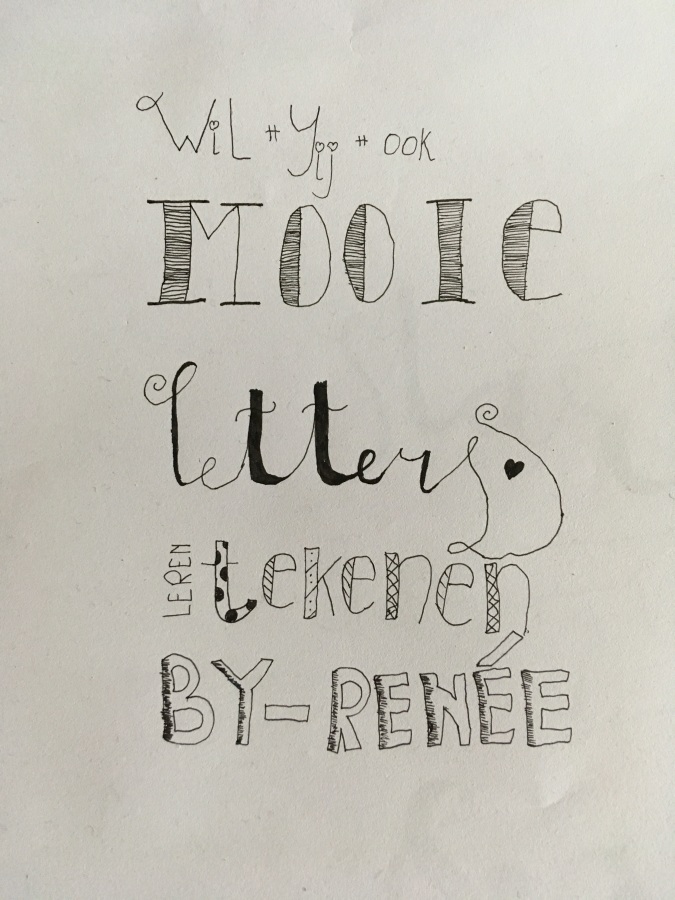 Wil # Yij # ook
MOOIE
letters
LEREN tekenen
BY-RENÉE